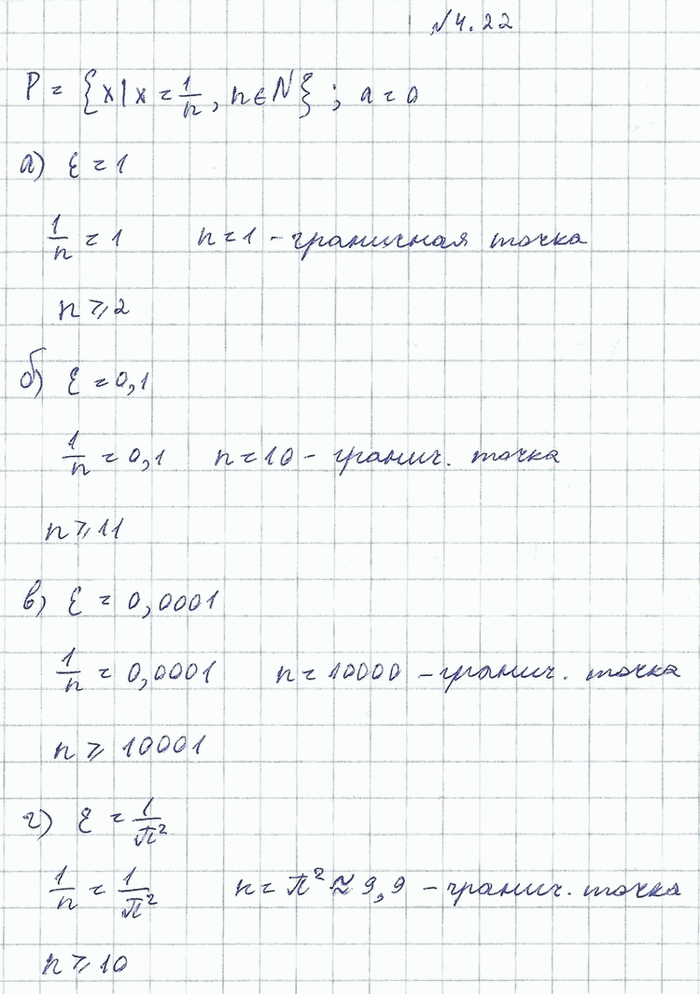 №4.22
P = {x | x = 1/n, n ∈ N}; a = 0
а) ε = 1
1/n = 1 n = 1 - граничная точка
n ⩾ 2
б) ε = 0,1
1/n = 0,1 n = 10 - гранич. точка
n ⩾ 11
в) ε = 0,0001
1/n = 0,0001 n = 10000 - гранич. точка
n ⩾ 10001
г) ε = 1/π²
1/n = 1/π² n = π² ≈ 9,9 - гранич. точка
n ⩾ 10